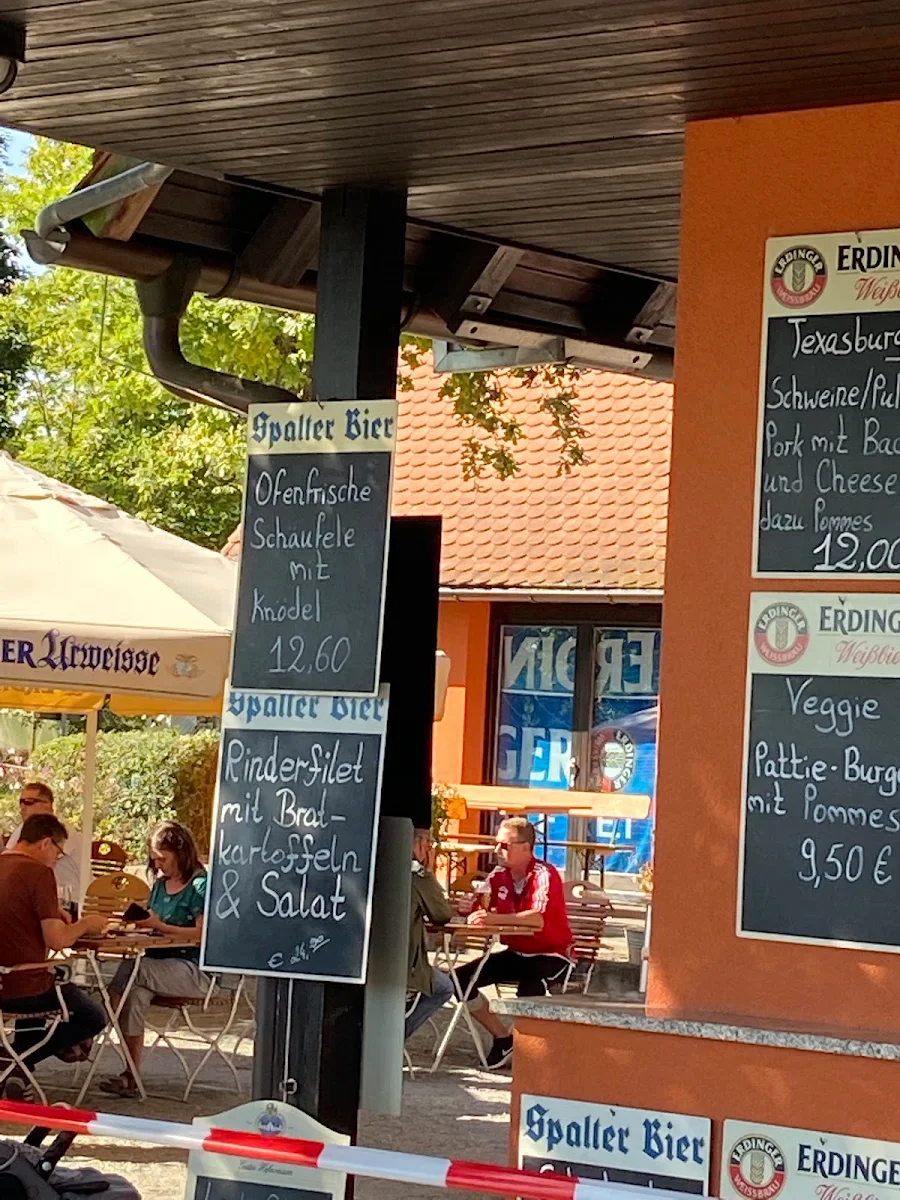 Spalter Bier
Ofenfrische
Schäufele
mit
Knödel
12,60
Spalter Bier
Rinderfilet
mit Brat-
kartoffeln
& Salat
ER Urweisse
ERDINGER
WEISSBRÄU
ERDIN
Weiß
Texasburg
Schweine/Pul
Pork mit Bac
und Cheese
dazu Pommes
12,00
ERDINGER
WEISSBRÄU
ERDING
Weißbie
Veggie
Pattie-Burge
mit Pommes
9,50 €
GER
ERDINGER
Spalter Bier
ERDINGER
WEISSBRÄU
ERDINGE